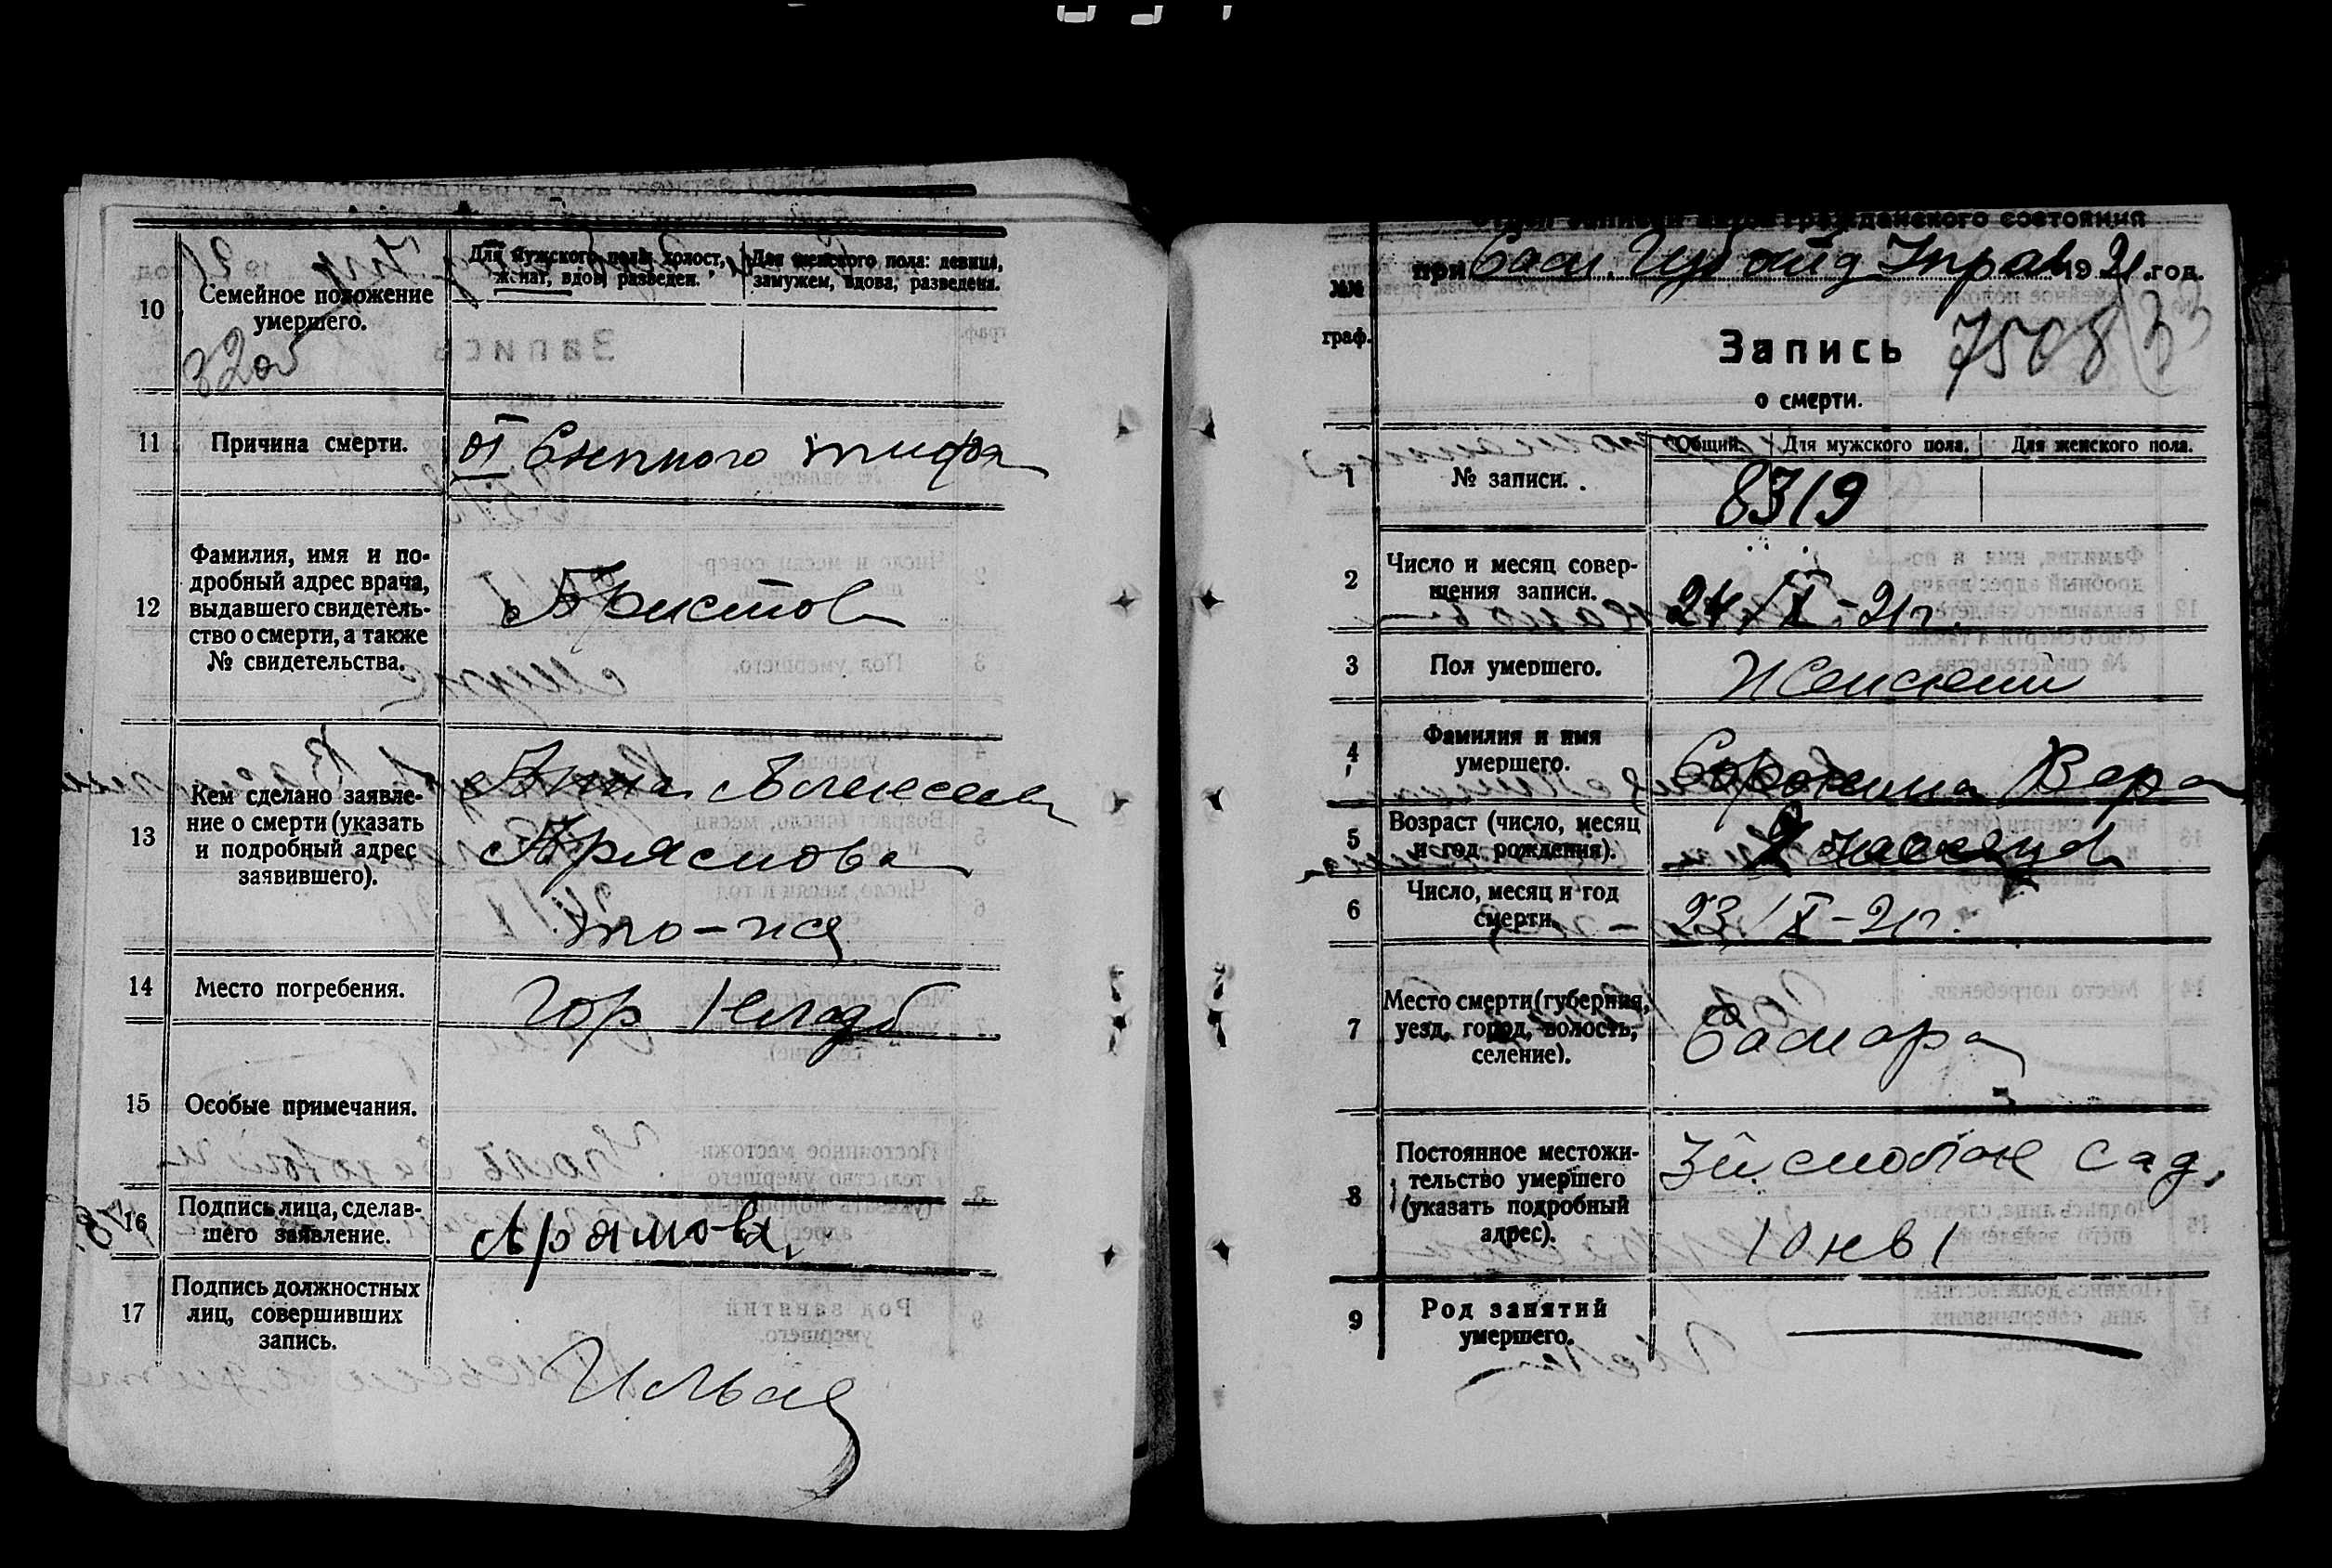 10
Семейное положение
умершего.
Для мужского пола: холост,
женат, вдов, разведен.
Для женского пола: девица,
замужем, вдова, разведена.
11
Причина смерти.
от Сыпного тифа
12
Фамилия, имя и по-
дробный адрес врача,
выдавшего свидетель-
ство о смерти, а также
№ свидетельства.
Аристов
13
Кем сделано заявле-
ние о смерти (указать
и подробный адрес
заявившего).
Анна Алексеев
то-же
14
Место погребения.
Гор Кладб
15
Особые примечания.
16
Подпись лица, сделав-
шего заявление.
17
Подпись должностных
лиц, совершивших
запись.
Отдел записи актов гражданского состояния
при Сам. Управ 1921 год.
№№
граф.
Запись
7508
33
о смерти.
1
№ записи.
Общий.
Для мужского пола.
Для женского пола.
8319
2
Число и месяц совер-
шения записи.
24/X-21г.
3
Пол умершего.
Женский
4
Фамилия и имя
умершего.
Сорокина Вера
5
Возраст (число, месяц
и год рождения).
месяцев
6
Число, месяц и год
смерти.
23/X-21г.
7
Место смерти (губерния,
уезд, город, волость,
селение).
Самара
8
Постоянное местожи-
тельство умершего
(указать подробный
адрес).
сад,
10 кв 1
9
Род занятий
умершего.